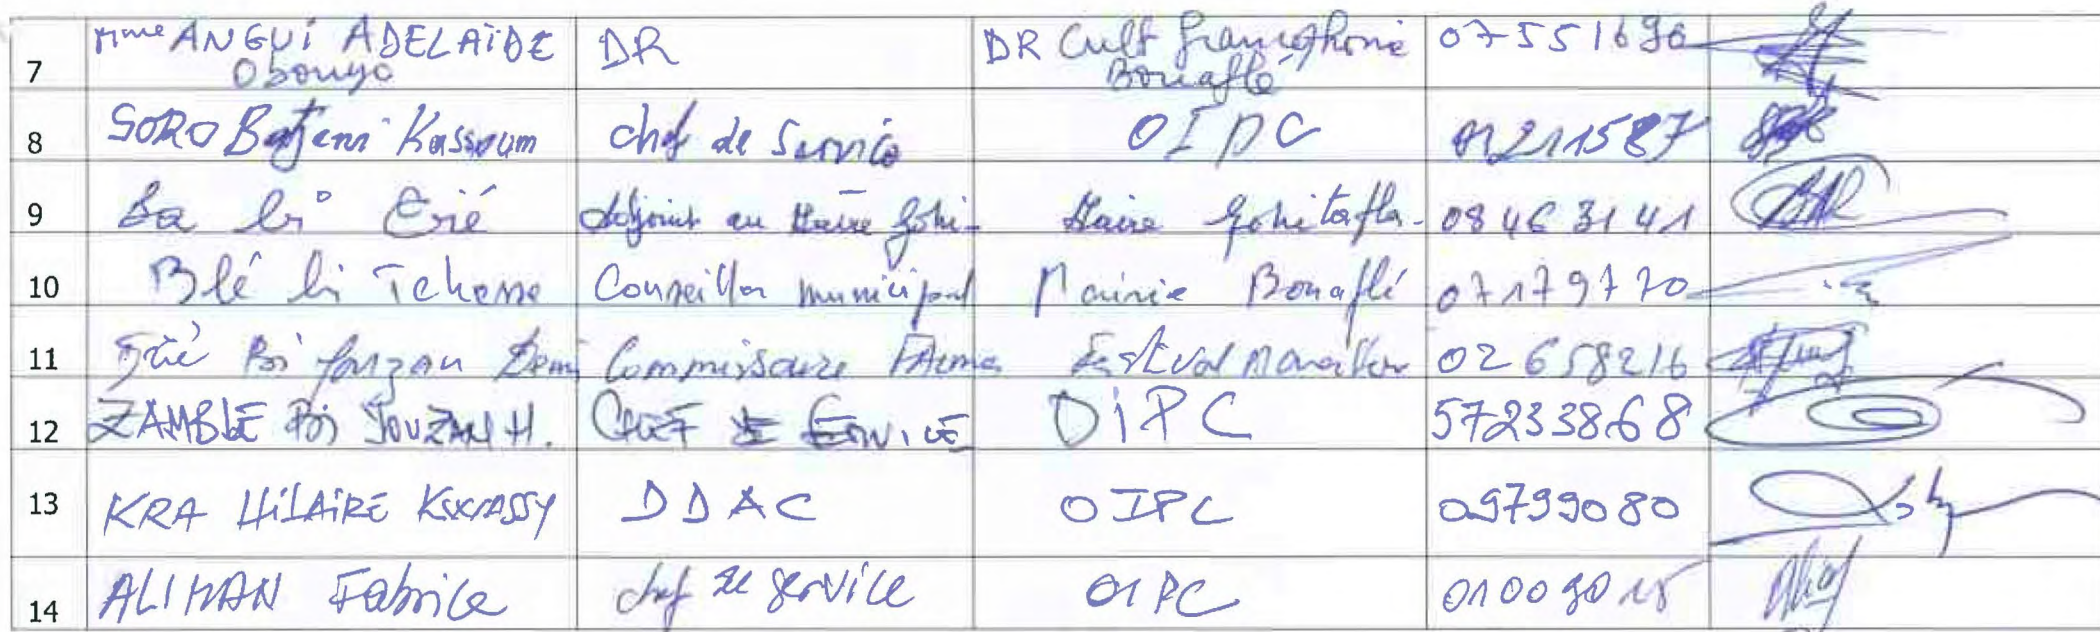 7 Mme ANGUI ADELAÏDE DR DR Cult francophonie 07551690
Obouyo Bouaflé
8 SORO Kassoum chef de Service OIPC 01211587
9 Ba bi Erié Adjoint au Maire Gohi- Mairie Gohitafla 08463141
10 Blé bi Conseiller municipal Mairie Bouaflé 07179770
11 Bi Commissaire Festival 02658216
12 ZAMBLE Bi JOUZAN H. CHEF DE SERVICE OIPC 57233868
13 KRA HILAIRE DDAC OIPC 09799080
14 ALIMAN Fabrice chef de service OIPC 01009015